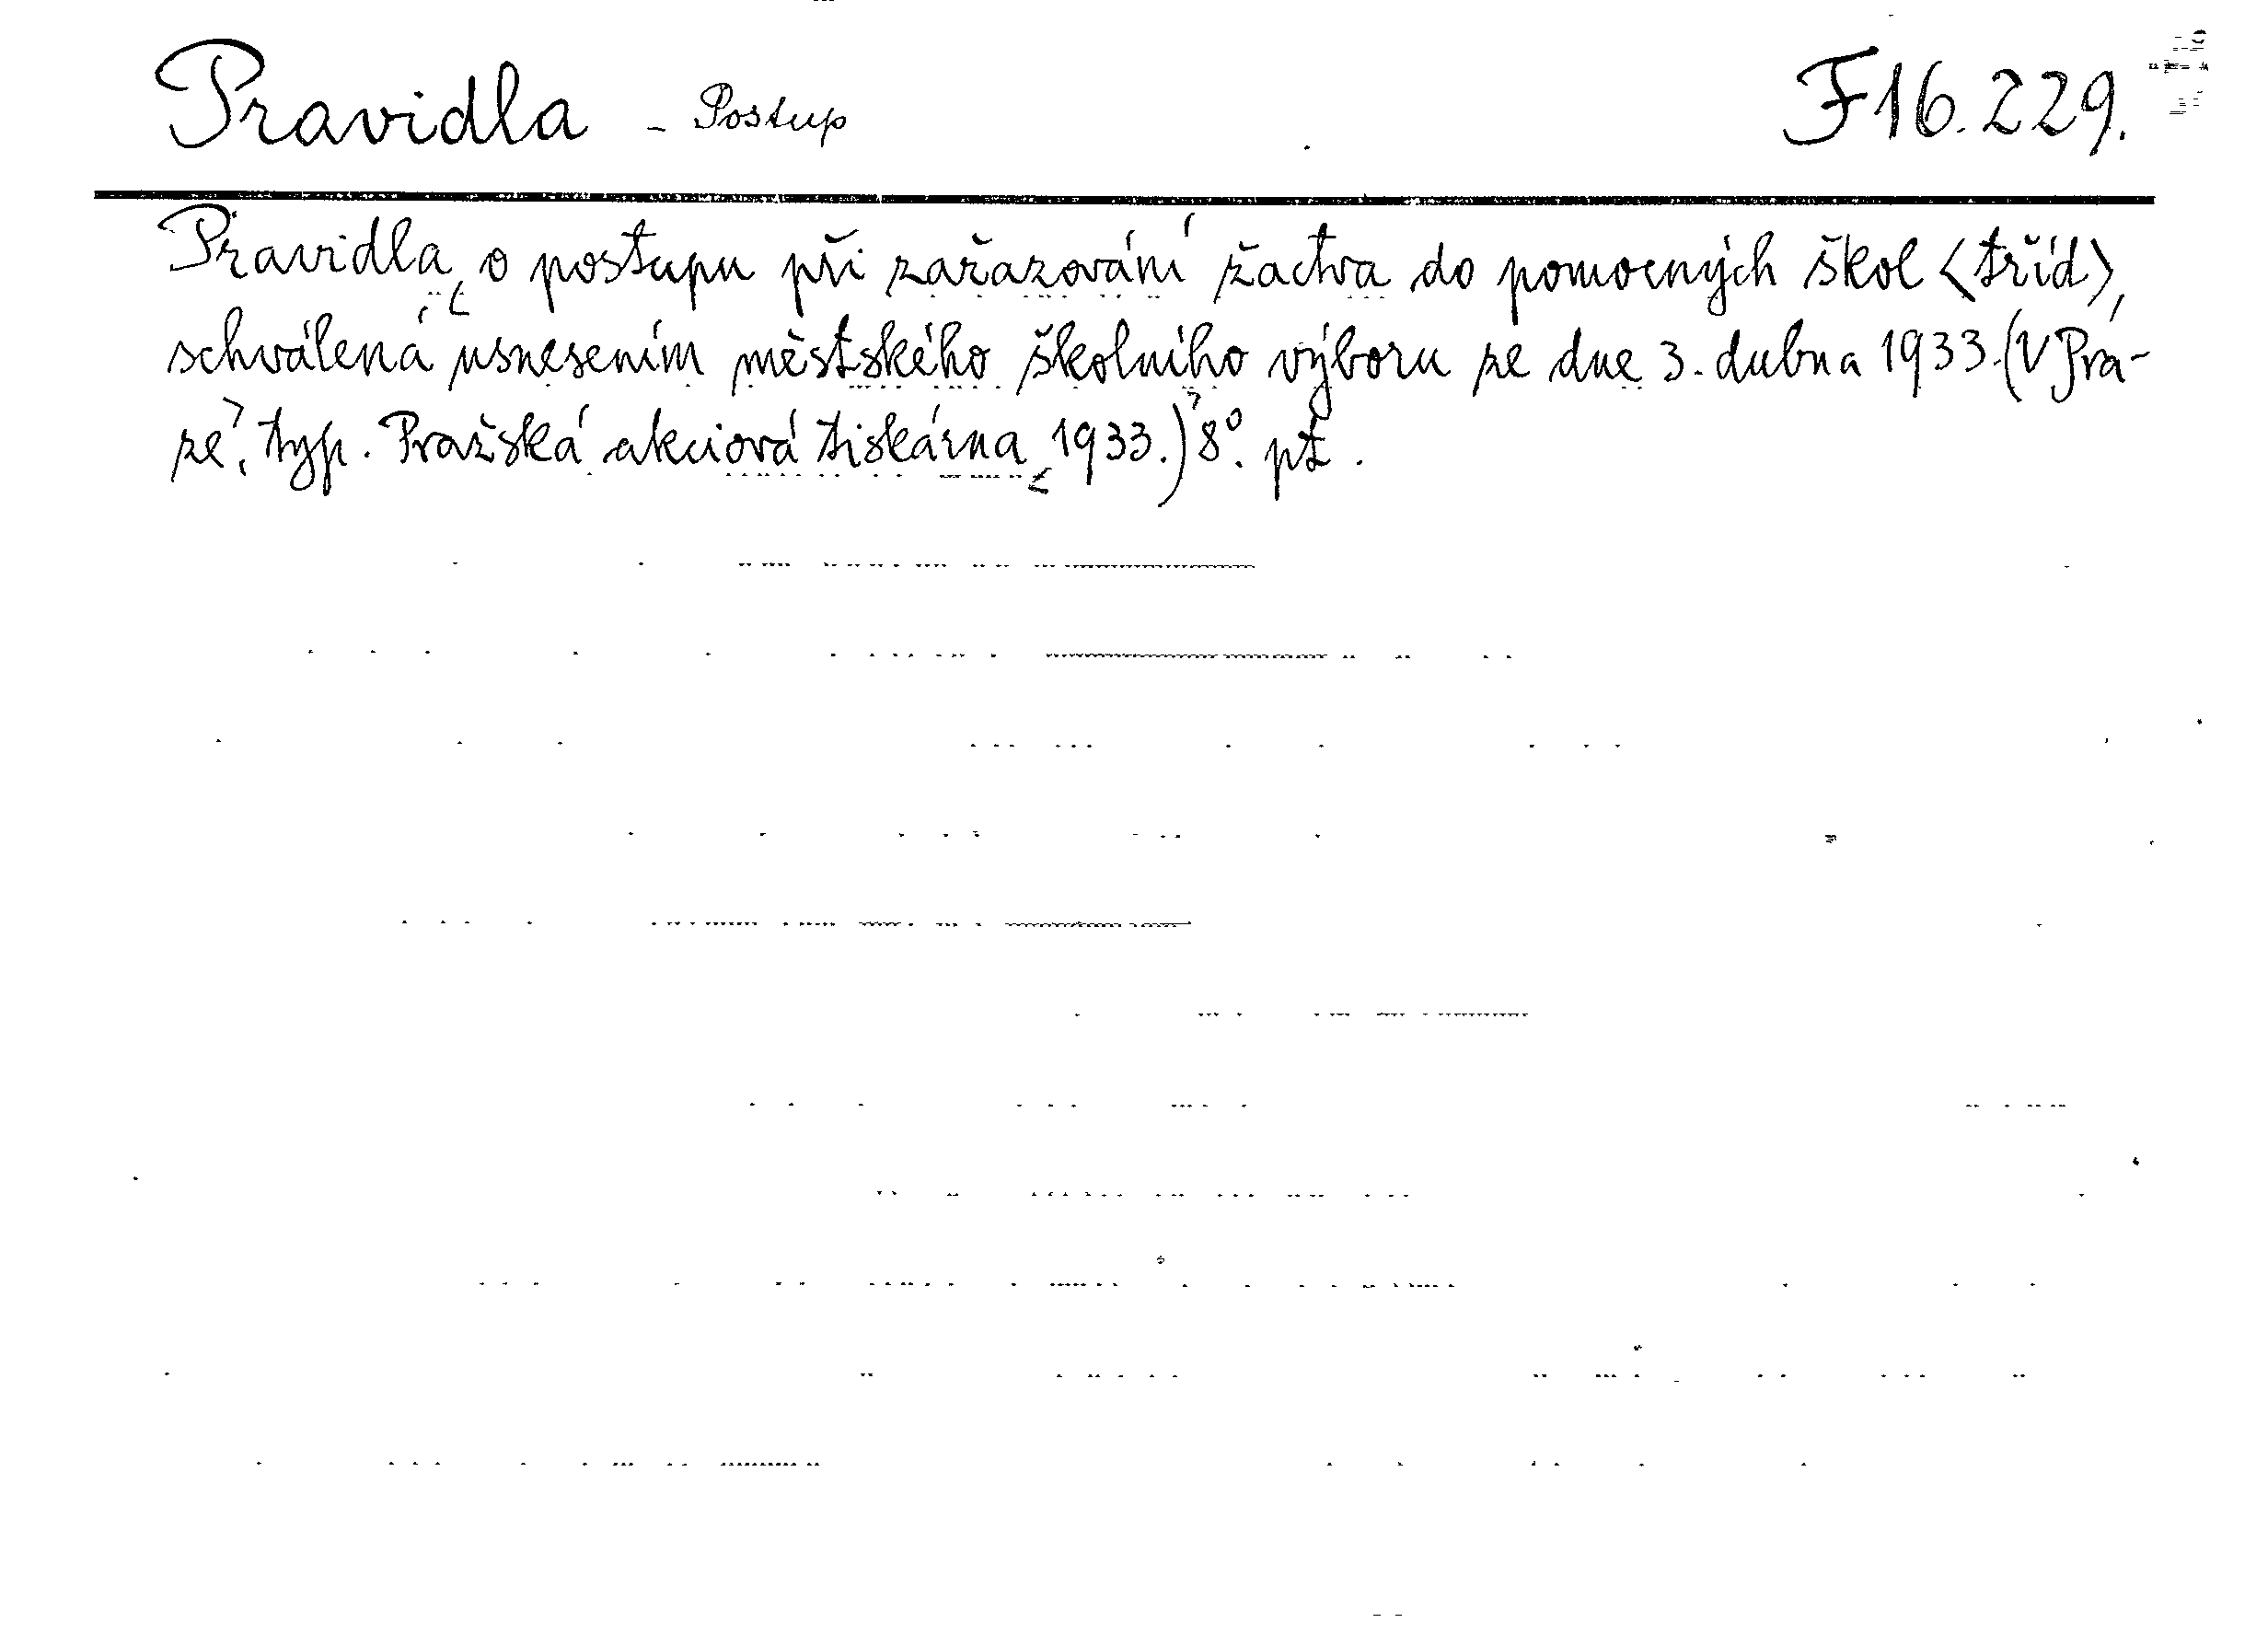 Pravidla - Postup F 16.229.
Pravidla o postupu při zařazování žactva do pomocných škol <tříd>,
schválená usnesením městského školního výboru ze dne 3. dubna 1933. (V Pra-
ze, typ. Pražská akciová tiskárna 1933.) 8°. př.